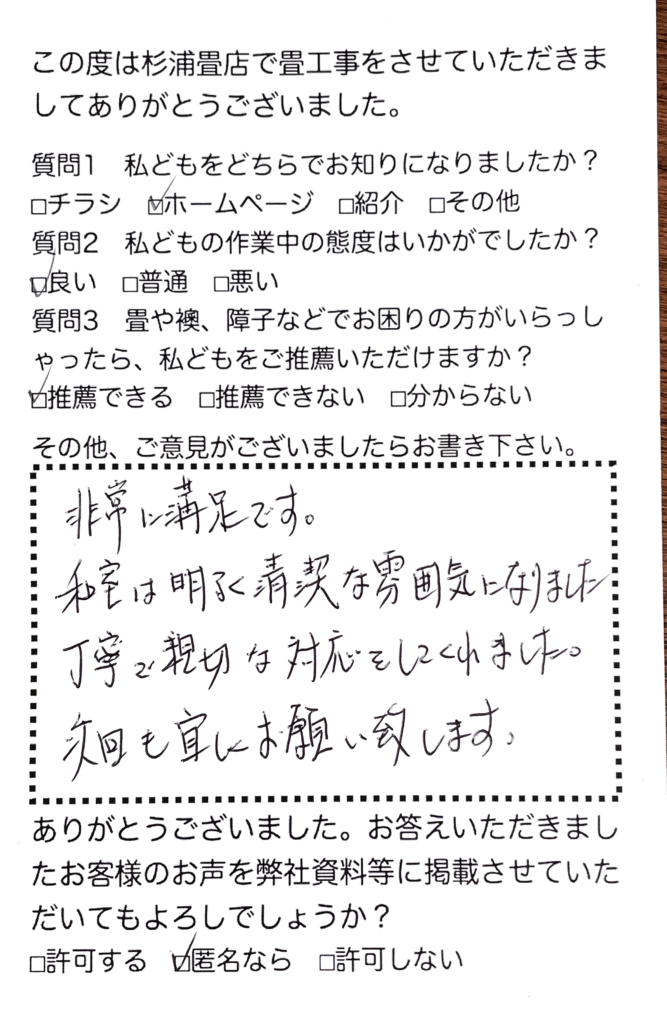 この度は杉浦畳店で畳工事をさせていただきま
してありがとうございました。
質問1 私どもをどちらでお知りになりましたか？
□チラシ ☑ホームページ □紹介 □その他
質問2 私どもの作業中の態度はいかがでしたか？
☑良い □普通 □悪い
質問3 畳や襖、障子などでお困りの方がいらっし
ゃったら、私どもをご推薦いただけますか？
☑推薦できる □推薦できない □分からない
その他、ご意見がございましたらお書き下さい。
非常に満足です。
和室は明るく清潔な雰囲気になりました
丁寧で親切な対応をしてくれました。
次回も宜しくお願い致します。
ありがとうございました。お答えいただきまし
たお客様のお声を弊社資料等に掲載させていた
だいてもよろしでしょうか？
□許可する ☑匿名なら □許可しない